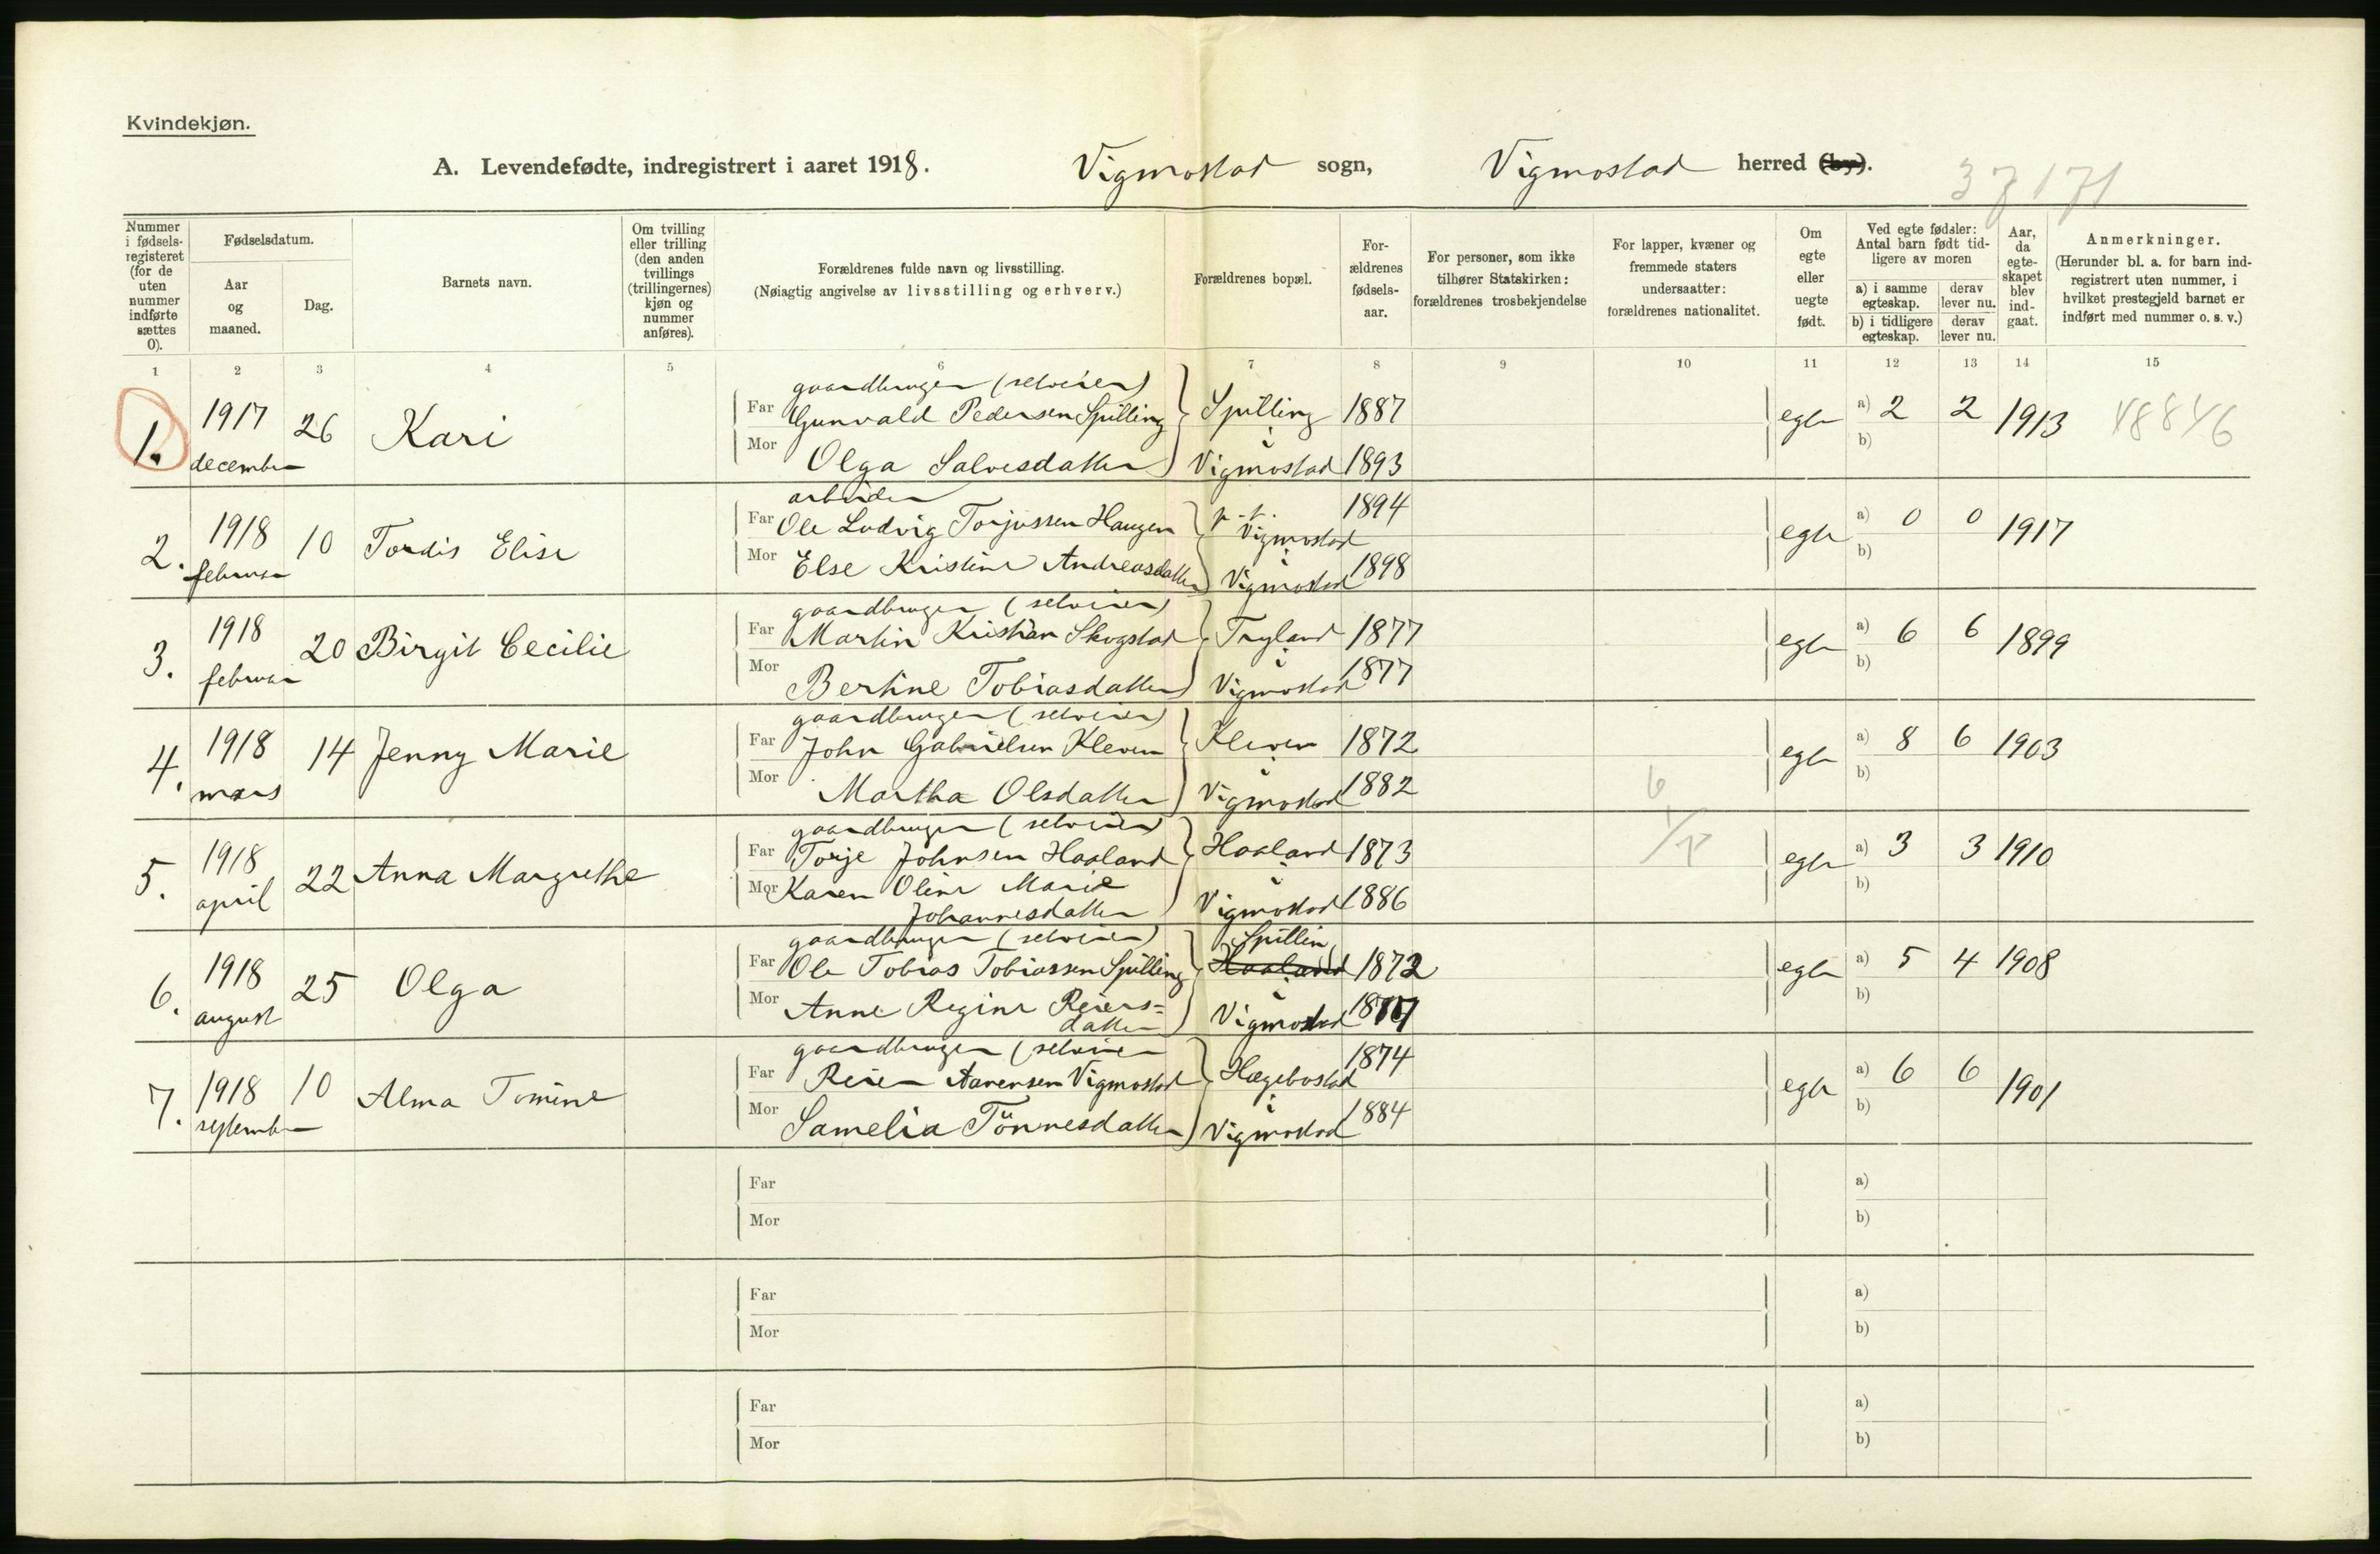 Kvindekjøn.
A. Levendefødte, indregistrert i aaret 1918. Vigmostad sogn, Vigmostad herred (by).
37171
Nummer i fødsels-registeret (for de uten nummer indførte sættes 0).
Fødselsdatum.
Aar og maaned.
Dag.
Barnets navn.
Om tvilling eller trilling (den anden tvillings (trillingernes) kjøn og nummer anføres).
Forældrenes fulde navn og livsstilling.
(Nøiagtig angivelse av livsstilling og erhverv.)
Forældrenes bopæl.
For-ældrenes fødsels-aar.
For personer, som ikke tilhører Statskirken: forældrenes trosbekjendelse
For lapper, kvæner og fremmede staters undersaatter: forældrenes nationalitet.
Om egte eller uegte født.
Ved egte fødsler: Antal barn født tid-ligere av moren
a) i samme egteskap. derav lever nu.
b) i tidligere egteskap. derav lever nu.
Aar, da egte-skapet blev ind-gaat.
Anmerkninger.
(Herunder bl. a. for barn ind-registrert uten nummer, i hvilket prestegjeld barnet er indført med nummer o. s. v.)
1 2 3 4 5 6 7 8 9 10 11 12 13 14 15
gaardbruger (selveier)
1. 1917 december 26 Kari Far Gunvald Pedersen Spilling Spilling 1887 egte a) 2 2 1913
Mor Olga Salvesdatter i Vigmostad 1893 b)
arbeider
2. 1918 februar 10 Tordis Elise Far Ole Ludvig Torjussen Haugen p.t. Vigmostad 1894 egte a) 0 0 1917
Mor Else Kristine Andreasdatter i Vigmostad 1898 b)
gaardbruger (selveier)
3. 1918 februar 20 Birgit Cecilie Far Martin Kristian Skogstad Tryland 1877 egte a) 6 6 1899
Mor Bertine Tobiasdatter i Vigmostad 1877 b)
gaardbruger (selveier)
4. 1918 mars 14 Jenny Marie Far John Gabrielsen Kleven Kleven 1872 egte a) 8 6 1903
Mor Martha Olsdatter i Vigmostad 1882 b)
6
gaardbruger (selveier)
5. 1918 april 22 Anna Margrethe Far Torje Johnsen Haaland Haaland 1873 egte a) 3 3 1910
Mor Karen Oline Marie Johannesdatter i Vigmostad 1886 b)
gaardbruger (selveier) Spilling
6. 1918 august 25 Olga Far Ole Tobias Tobiassen Spilling Haaland 1872 egte a) 5 4 1908
Mor Anne Regine Reiers=datter i Vigmostad b)
gaardbruger (selveier
7. 1918 september 10 Alma Tomine Far Reier Aanensen Vigmostad Hægebostad 1874 egte a) 6 6 1901
Mor Samelia Tönnesdatter i Vigmostad 1884 b)
Far a)
Mor b)
Far a)
Mor b)
Far a)
Mor b)